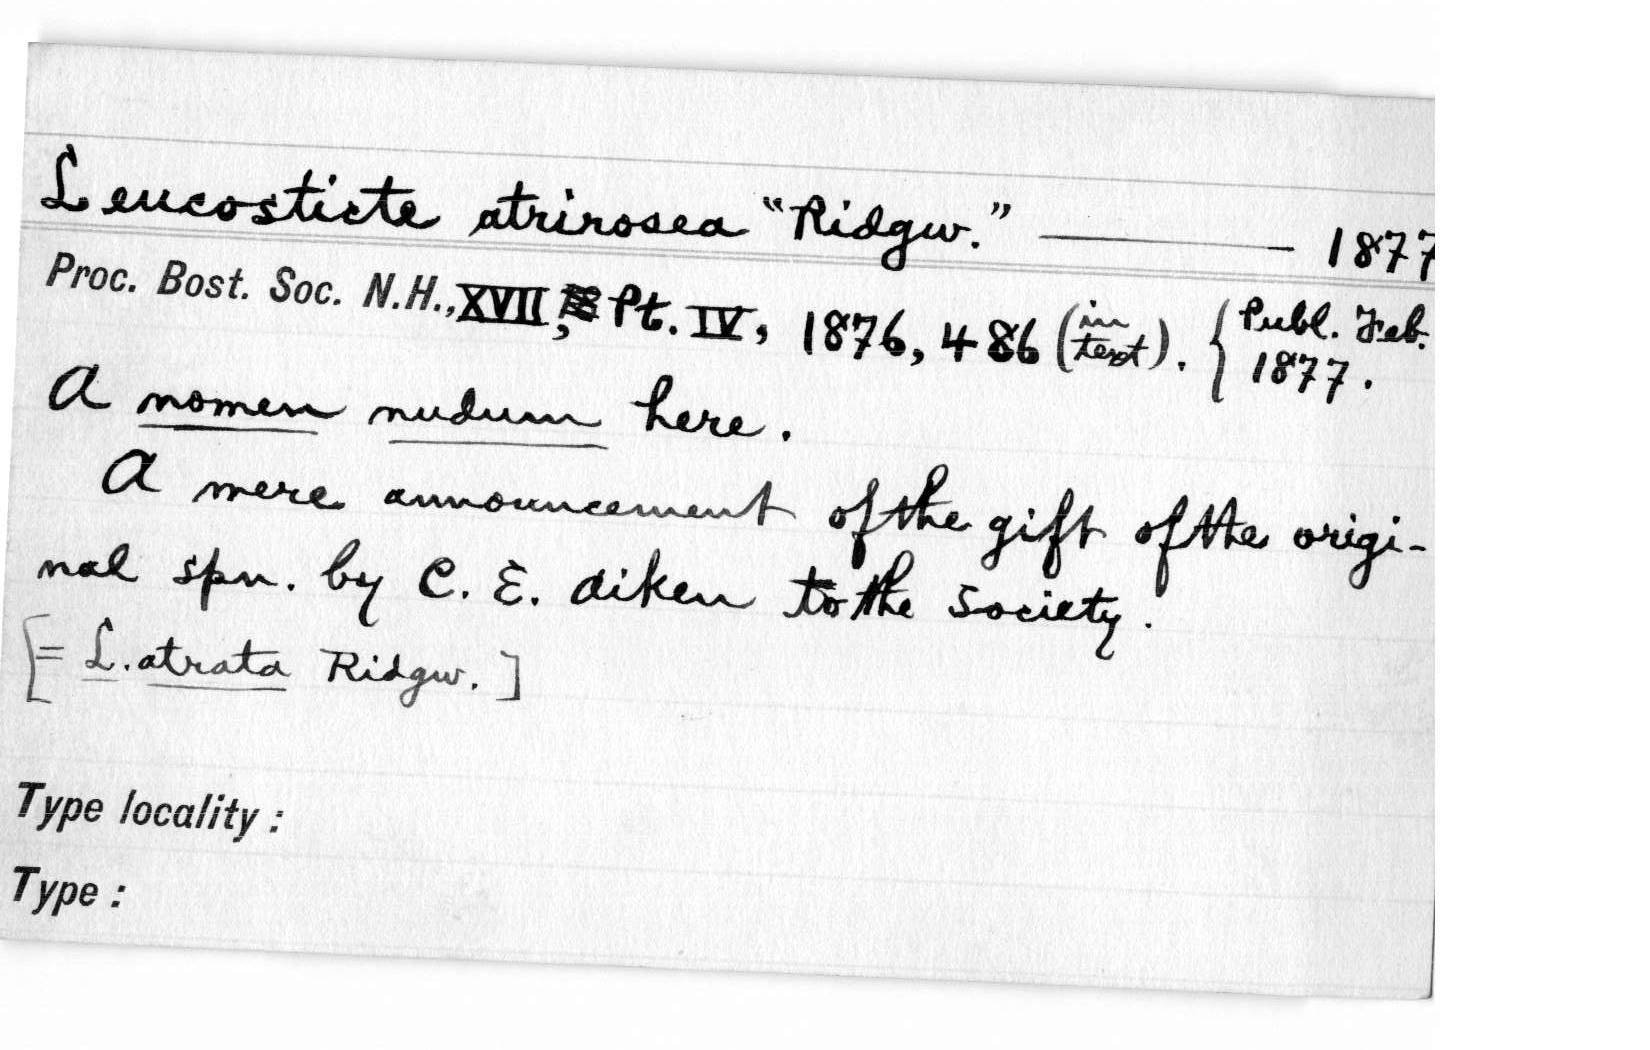 Leucosticte atrirosea "Ridgw." ——— 1877
Proc. Bost. Soc. N.H., XVII, Pt. IV, 1876, 486 (in text). { Publ. Feb. 1877.
A nomen nudum here.
A mere announcement of the gift of the origi-
nal spn. by C. E. Aiken to the Society.
[= L. atrata Ridgw.]
Type locality :
Type :